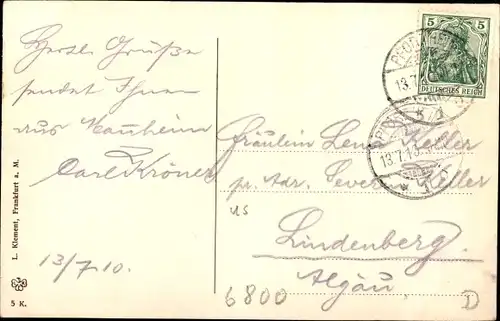 Herzl. Grüße
sendet Ihnen
aus Nauheim
Carl Kröner
13/7.10.
Fräulein Lena Keller
pr. Adr. Keller
Lindenberg.
Algäu
us
6800
5 5
DEUTSCHES REICH
13.7
13.7.1
L. Klement, Frankfurt a. M.
5 K.